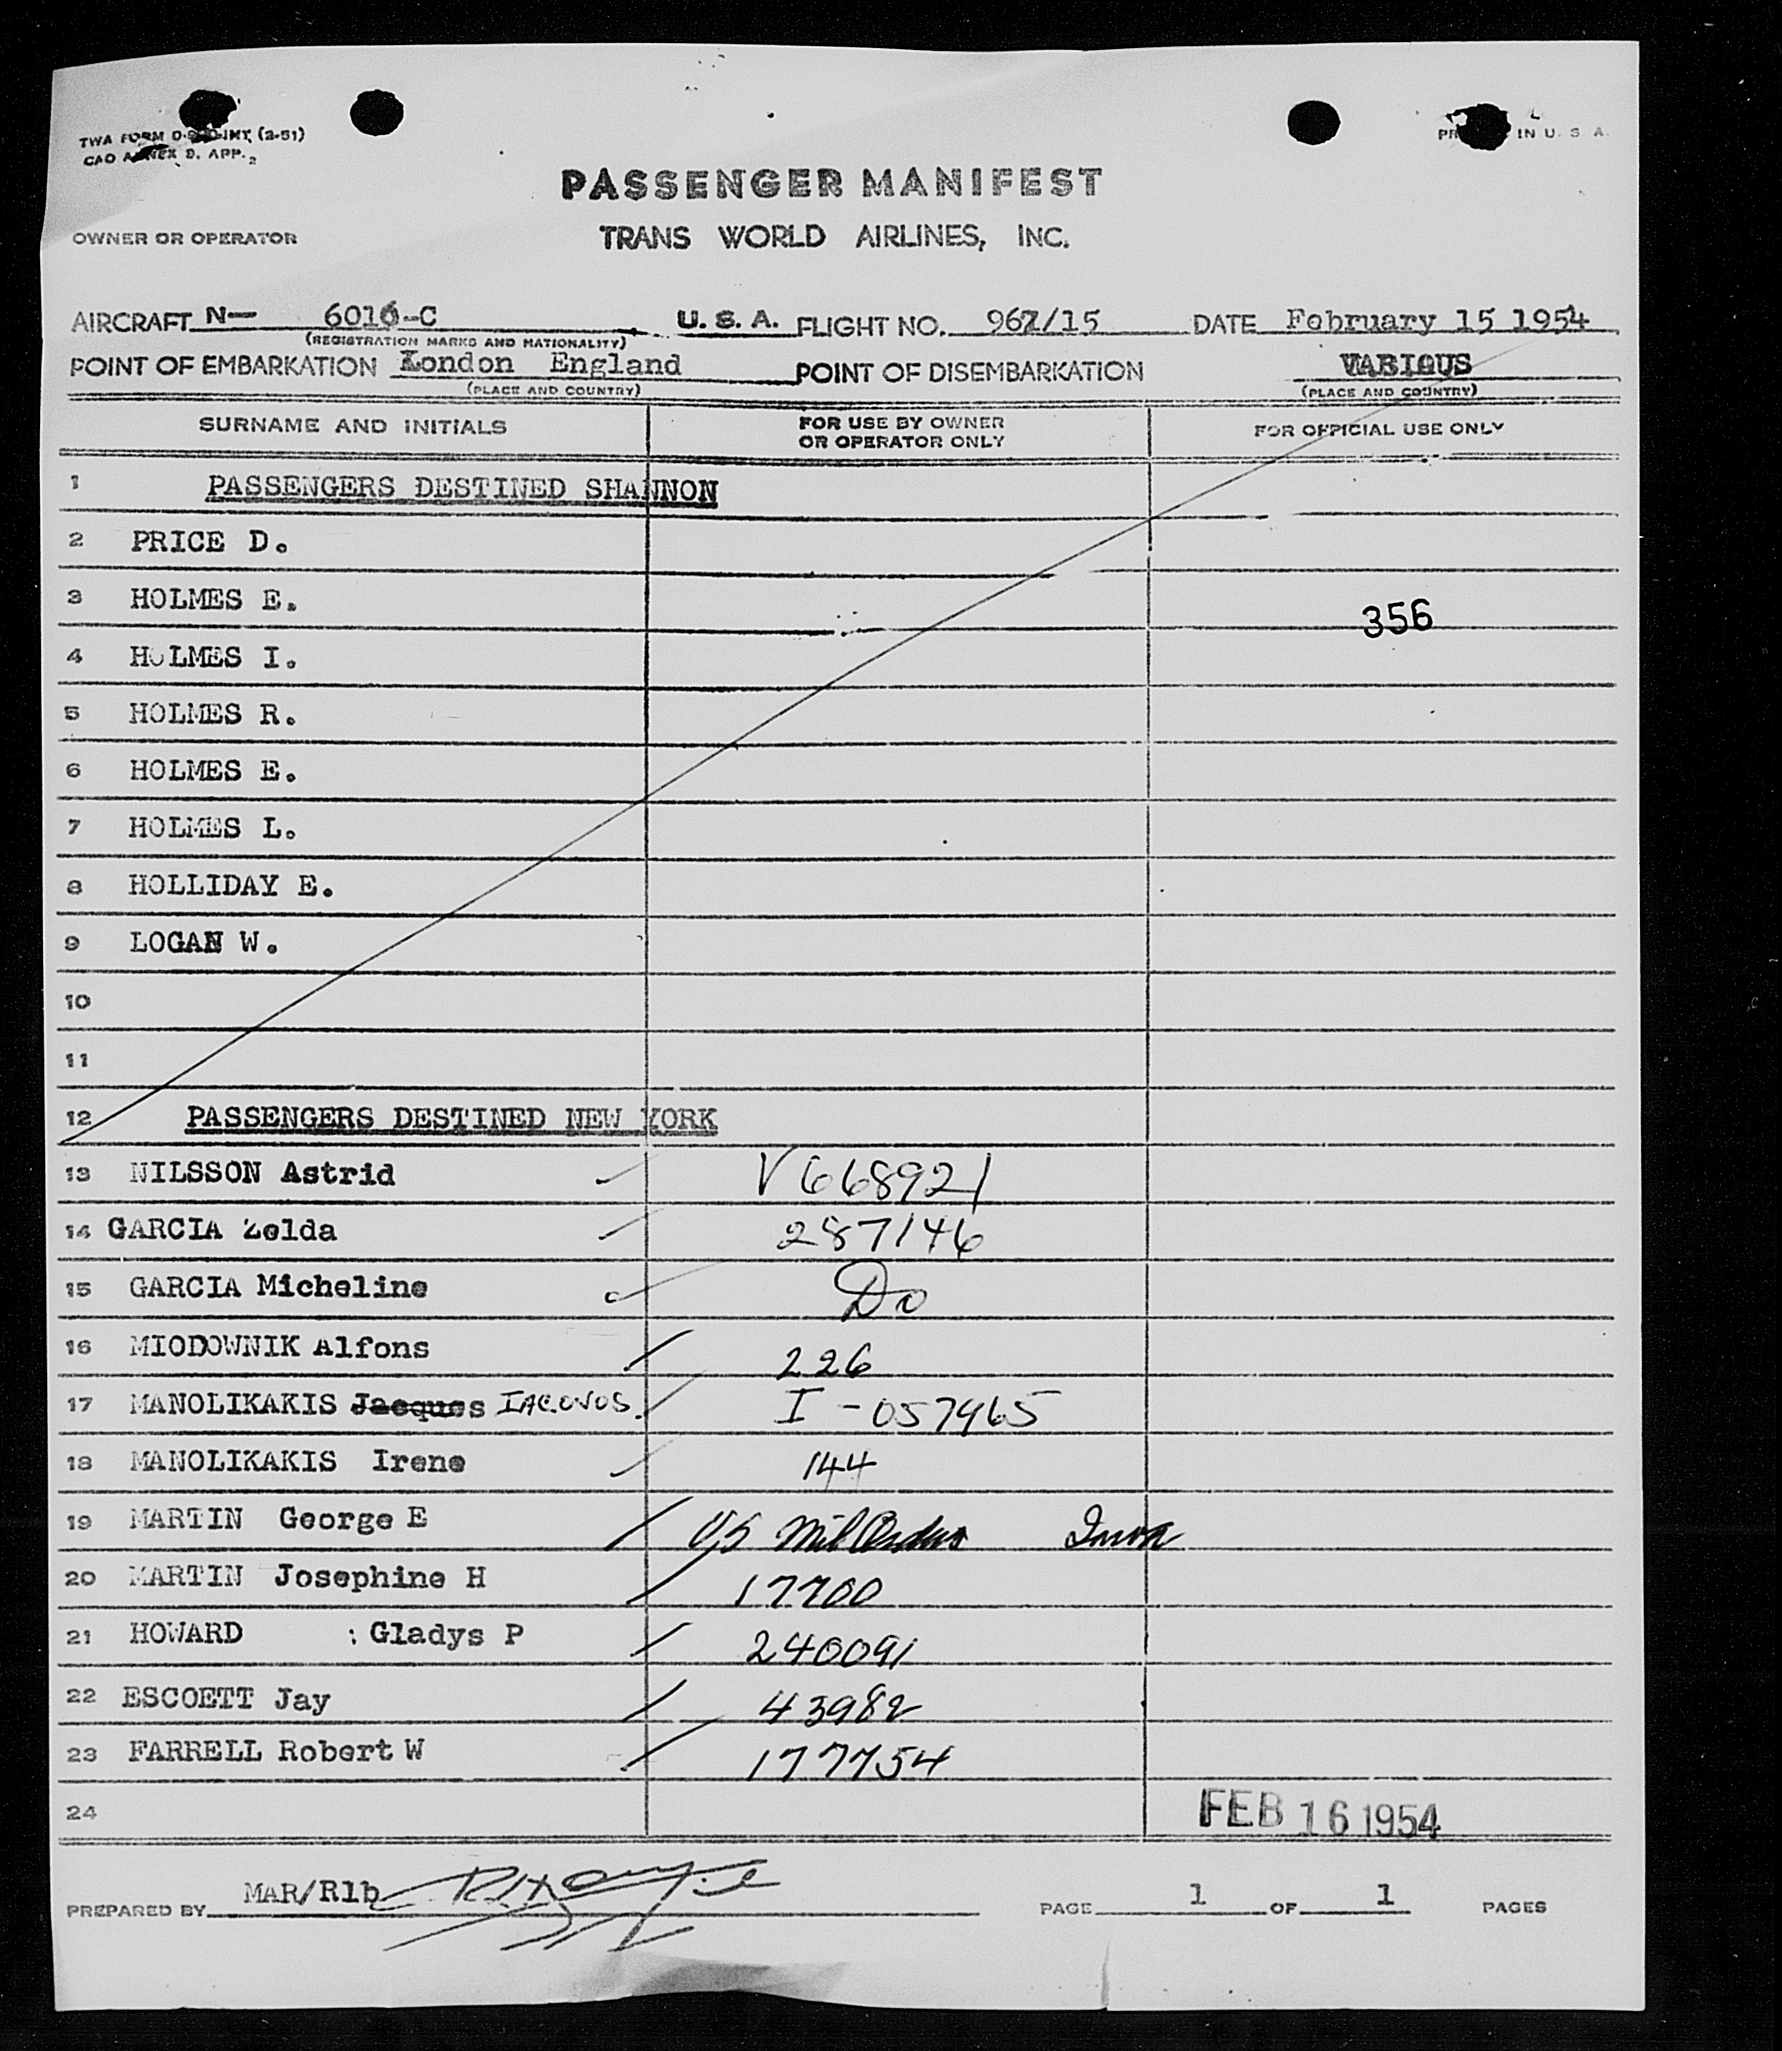 TWA FORM (2-51)
CAO ANNEX 9, APP. 2
IN U. S. A.
PASSENGER MANIFEST
OWNER OR OPERATOR TRANS WORLD AIRLINES, INC.
AIRCRAFT N— 6016-C U. S. A. FLIGHT NO. 967/15 DATE February 15 1954
(REGISTRATION MARKS AND NATIONALITY)
POINT OF EMBARKATION London England POINT OF DISEMBARKATION VARIOUS
(PLACE AND COUNTRY) (PLACE AND COUNTRY)
SURNAME AND INITIALS FOR USE BY OWNER OR OPERATOR ONLY FOR OFFICIAL USE ONLY
1 PASSENGERS DESTINED SHANNON
2 PRICE D.
3 HOLMES E.
356
4 HOLMES I.
5 HOLMES R.
6 HOLMES E.
7 HOLMES L.
8 HOLLIDAY E.
9 LOGAN W.
10
11
12 PASSENGERS DESTINED NEW YORK
13 NILSSON Astrid V668921
14 GARCIA Zelda 287146
15 GARCIA Micheline Do
16 MIODOWNIK Alfons 226
17 MANOLIKAKIS Jacques IACOVOS. I-057965
18 MANOLIKAKIS Irene 144
19 MARTIN George E US Mil Orders
20 MARTIN Josephine H 17700
21 HOWARD : Gladys P 240091
22 ESCOETT Jay 43982
23 FARRELL Robert W 177754
24
FEB 16 1954
PREPARED BY MAR/Rlb PAGE 1 OF 1 PAGES